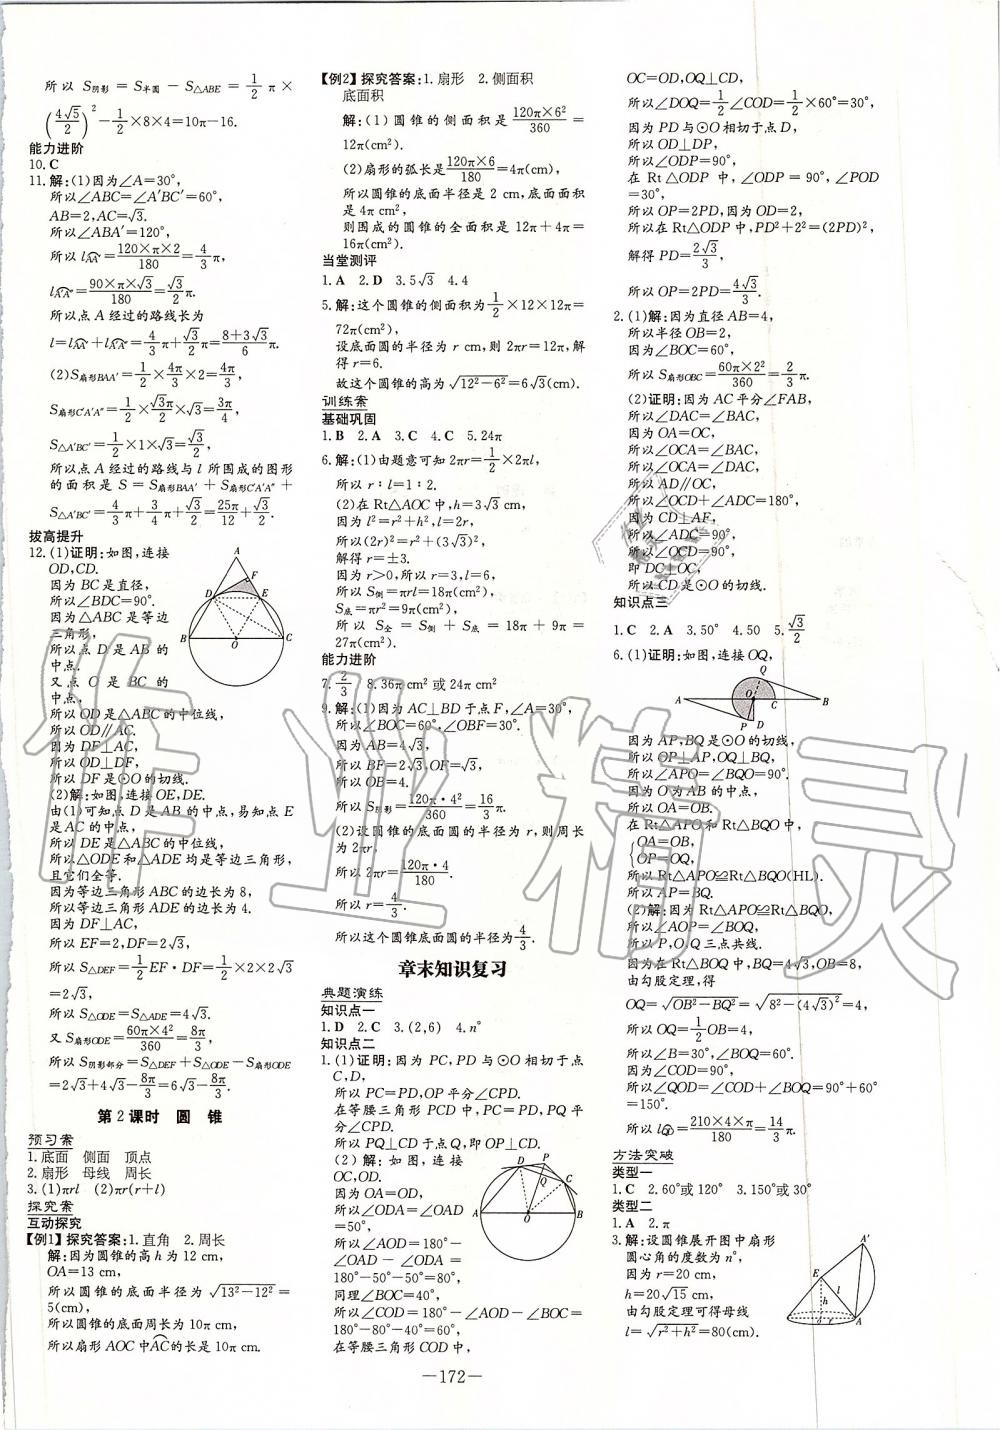 所以 S阴影 = S半圆 − S△ABE = 1/2 π×
(4√5/2)² − 1/2×8×4=10π−16.
能力进阶
10. C
11. 解:(1)因为∠A=30°,
所以∠ABC=∠A′BC′=60°,
AB=2,AC=√3.
所以∠ABA′=120°,
所以 lAA′=120×π×2/180=4/3 π,
lA′A″=90×π×√3/180=√3/2 π.
所以点 A 经过的路线长为
l=lAA′+lA′A″=4/3 π+√3/2 π=8+3√3/6 π.
(2)S扇形BAA′=1/2×4π/3×2=4π/3,
S扇形C′A′A″=1/2×√3π/2×√3=3π/4,
S△A′BC′=1/2×1×√3=√3/2,
所以点 A 经过的路线与 l 所围成的图形
的面积是 S=S扇形BAA′+S扇形C′A′A″+
S△A′BC′=4/3 π+3/4 π+√3/2=25π/12+√3/2.
拔高提升
12. (1)证明:如图,连接
OD,CD.
因为 BC 是直径,
所以∠BDC=90°.
因为△ABC 是等边
三角形,
所以点 D 是 AB 的
中点.
又点 O 是 BC 的
中点,
所以 OD 是△ABC 的中位线,
所以 OD∥AC.
因为 DF⊥AC,
所以 OD⊥DF,
所以 DF 是⊙O 的切线.
(2)解:如图,连接 OE,DE.
由(1)可知点 D 是 AB 的中点,易知点 E
是 AC 的中点,
所以 DE 是△ABC 的中位线,
所以△ODE 和△ADE 均是等边三角形,
且它们全等.
因为等边三角形 ABC 的边长为 8,
所以等边三角形 ADE 的边长为 4.
因为 DF⊥AC,
所以 EF=2,DF=2√3,
所以 S△DEF=1/2 EF·DF=1/2×2×2√3
=2√3,
所以 S△ODE=S△ADE=4√3.
又 S扇形ODE=60π×4²/360=8π/3,
所以 S阴影部分=S△DEF+S△ODE−S扇形ODE
=2√3+4√3−8π/3=6√3−8π/3.
第 2 课时 圆 锥
预习案
1. 底面 侧面 顶点
2. 扇形 母线 周长
3. (1)πrl (2)πr(r+l)
探究案
互动探究
【例1】探究答案:1. 直角 2. 周长
解:因为圆锥的高 h 为 12 cm,
OA=13 cm,
所以圆锥的底面半径为√13²−12²=
5(cm),
所以圆锥的底面周长为 10π cm,
所以扇形 AOC 中AC的长是 10π cm.
【例2】探究答案:1. 扇形 2. 侧面积
底面积
解:(1)圆锥的侧面积是120π×6²/360=
12π(cm²).
(2)扇形的弧长是120π×6/180=4π(cm),
所以圆锥的底面半径是 2 cm,底面面积
是 4π cm²,
则围成的圆锥的全面积是 12π+4π=
16π(cm²).
当堂测评
1. A 2. D 3. 5√3 4. 4
5. 解:这个圆锥的侧面积为1/2×12×12π=
72π(cm²),
设底面圆的半径为 r cm,则 2πr=12π,解
得 r=6.
故这个圆锥的高为√12²−6²=6√3(cm).
训练案
基础巩固
1. B 2. A 3. C 4. C 5. 24π
6. 解:(1)由题意可知 2πr=1/2×2πl,
所以 r∶l=1∶2.
(2)在 Rt△AOC 中,h=3√3 cm,
因为 l²=r²+h²,l=2r,
所以(2r)²=r²+(3√3)²,
解得 r=±3.
因为 r>0,所以 r=3,l=6,
所以 S侧=πrl=18π(cm²),
S底=πr²=9π(cm²),
所以 S全=S侧+S底=18π+9π=
27π(cm²).
能力进阶
7. 2/3 8. 36π cm² 或 24π cm²
9. 解:(1)因为 AC⊥BD 于点 F,∠A=30°,
所以∠BOC=60°,∠OBF=30°.
因为 AB=4√3,
所以 BF=2√3,OF=√3,
所以 OB=4.
所以 S阴影=120π·4²/360=16/3 π.
(2)设圆锥的底面圆的半径为 r,则周长
为 2πr,
所以 2πr=120π·4/180.
所以 r=4/3.
所以这个圆锥底面圆的半径为4/3.
章末知识复习
典题演练
知识点一
1. D 2. C 3. (2,6) 4. n°
知识点二
1. (1)证明:因为 PC,PD 与⊙O 相切于点
C,D,
所以 PC=PD,OP 平分∠CPD.
在等腰三角形 PCD 中,PC=PD,PQ 平
分∠CPD.
所以 PQ⊥CD 于点 Q,即 OP⊥CD.
(2)解:如图,连接
OC,OD.
因为 OA=OD,
所以∠ODA=∠OAD
=50°,
所以∠AOD=180°−
∠OAD−∠ODA=
180°−50°−50°=80°,
同理∠BOC=40°,
所以∠COD=180°−∠AOD−∠BOC=
180°−80°−40°=60°,
在等腰三角形 COD 中,
OC=OD,OQ⊥CD,
所以∠DOQ=1/2∠COD=1/2×60°=30°,
因为 PD 与⊙O 相切于点 D,
所以 OD⊥DP,
所以∠ODP=90°,
在 Rt△ODP 中,∠ODP=90°,∠POD
=30°,
所以 OP=2PD,因为 OD=2,
所以在 Rt△ODP 中,PD²+2²=(2PD)²,
解得 PD=2√3/3,
所以 OP=2PD=4√3/3.
2. (1)解:因为直径 AB=4,
所以半径 OB=2,
因为∠BOC=60°,
所以 S扇形OBC=60π×2²/360=2/3 π.
(2)证明:因为 AC 平分∠FAB,
所以∠DAC=∠BAC,
因为 OA=OC,
所以∠OCA=∠BAC,
所以∠OCA=∠DAC,
所以 AD∥OC,
所以∠OCD+∠ADC=180°,
因为 CD⊥AF,
所以∠ADC=90°,
所以∠OCD=90°,
即 DC⊥OC,
所以 CD 是⊙O 的切线.
知识点三
1. C 2. A 3. 50° 4. 50 5. √3/2
6. (1)证明:如图,连接 OQ,
因为 AP,BQ 是⊙O 的切线,
所以 OP⊥AP,OQ⊥BQ,
所以∠APO=∠BQO=90°.
因为 O 为 AB 的中点,
所以 OA=OB.
在 Rt△APO 和 Rt△BQO 中,
{OA=OB,
OP=OQ,
所以 Rt△APO≌Rt△BQO(HL).
所以 AP=BQ.
(2)解:因为 Rt△APO≌Rt△BQO,
所以∠AOP=∠BOQ,
所以 P,O,Q 三点共线.
因为在 Rt△BOQ 中,BQ=4√3,OB=8,
由勾股定理,得
OQ=√OB²−BQ²=√8²−(4√3)²=4,
所以 OQ=1/2 OB=4,
所以∠B=30°,
所以∠BOQ=60°,
因为∠COD=90°,
所以∠QOD=∠COD+∠BOQ=90°+60°
=150°.
所以 lQD=210×4×π/180=14/3 π.
方法突破
类型一
1. C 2. 60°或 120° 3. 150°或 30°
类型二
1. A 2. π
3. 解:设圆锥展开图中扇形
圆心角的度数为 n°,
因为 r=20 cm,
h=20√15 cm,
由勾股定理可得母线
l=√r²+h²=80(cm).
—172—
作业精灵